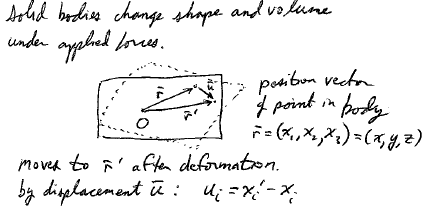 Solid bodies change shape and volume
under applied forces.
r̄ ū
O r̄'
position vector
of point in body
r̄ = (x₁, x₂, x₃) = (x, y, z)
moves to r̄' after deformation.
by displacement ū : uᵢ = xᵢ' - xᵢ